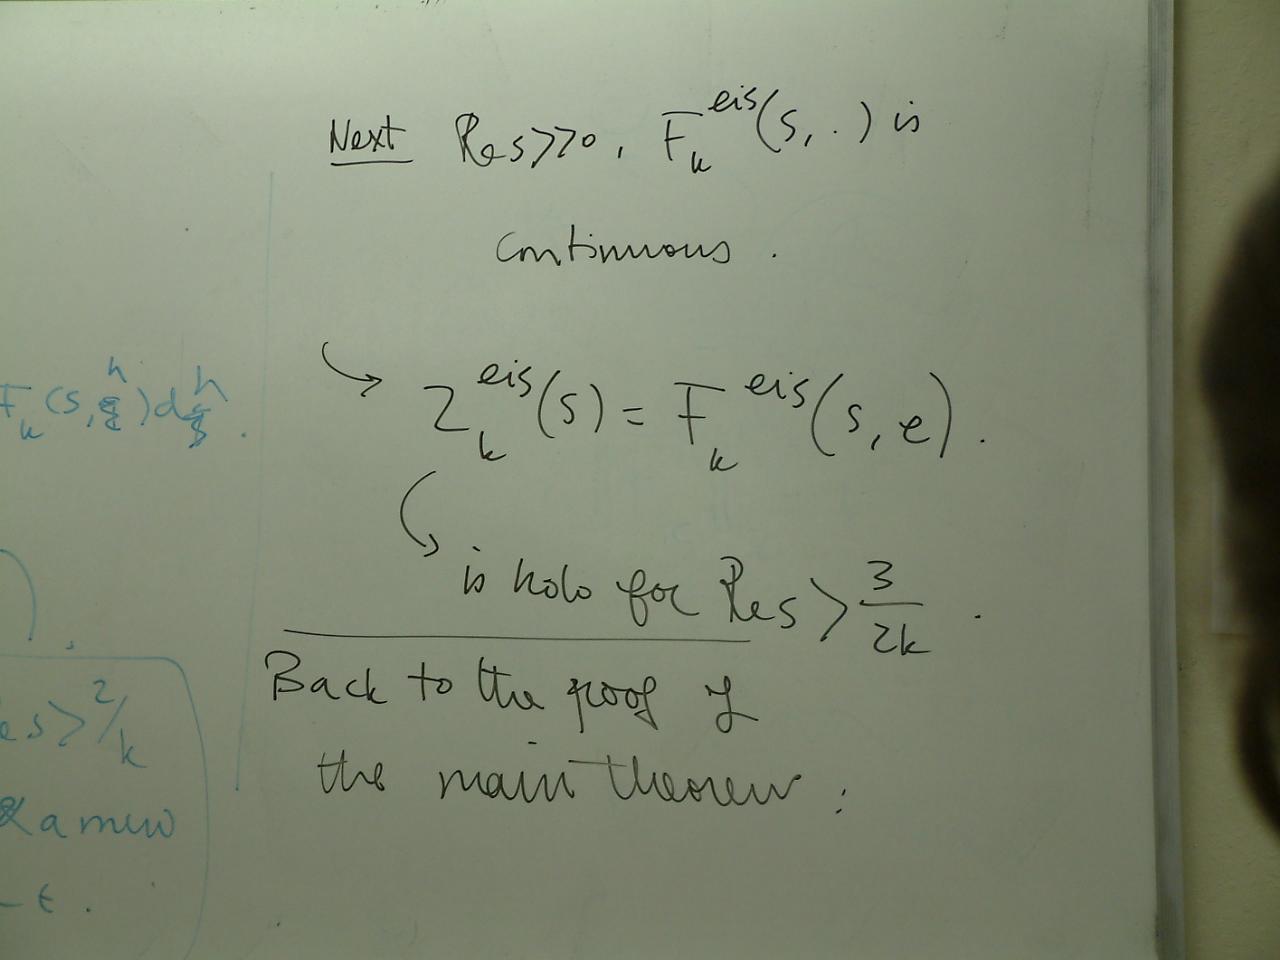 F_k(s, h)dh.
es > 2/k
& a mero
- t.
Next Re s >> 0, F_k^{eis}(s, .) is
continuous.
↪ Z_k^{eis}(s) = F_k^{eis}(s, e).
↪ is holo for Re s > 3/2k.
Back to the proof of
the main theorem :